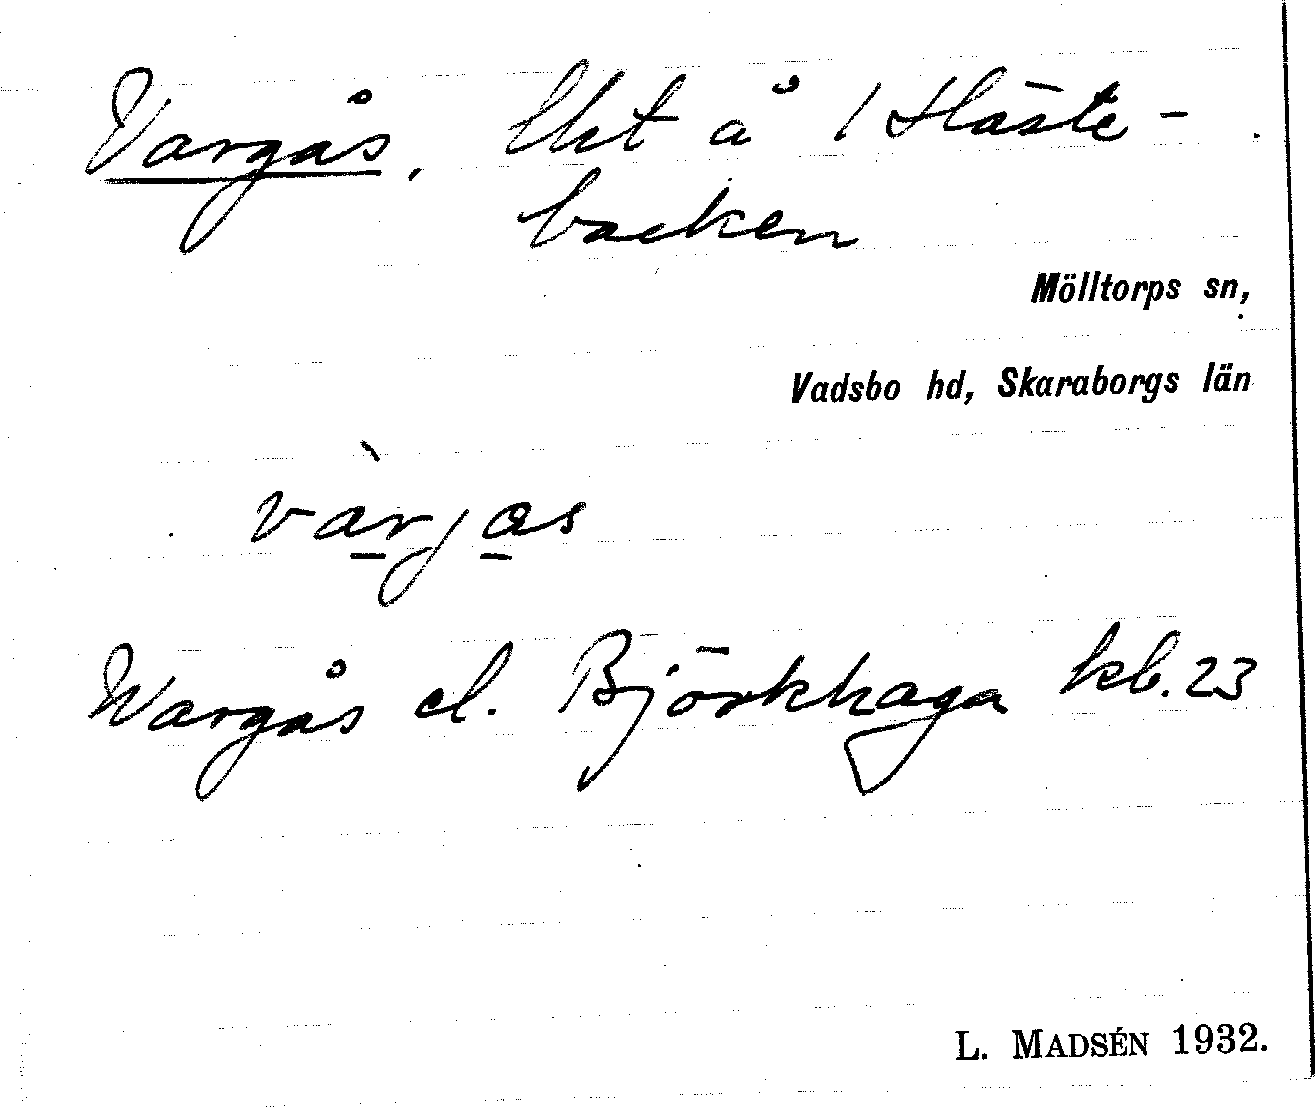 Vargås, lht å 1 Häste-
backen
Mölltorps sn,
Vadsbo hd, Skaraborgs län
vàrjas
Wargås el. Björkhaga kb. 23
L. MADSÉN 1932.